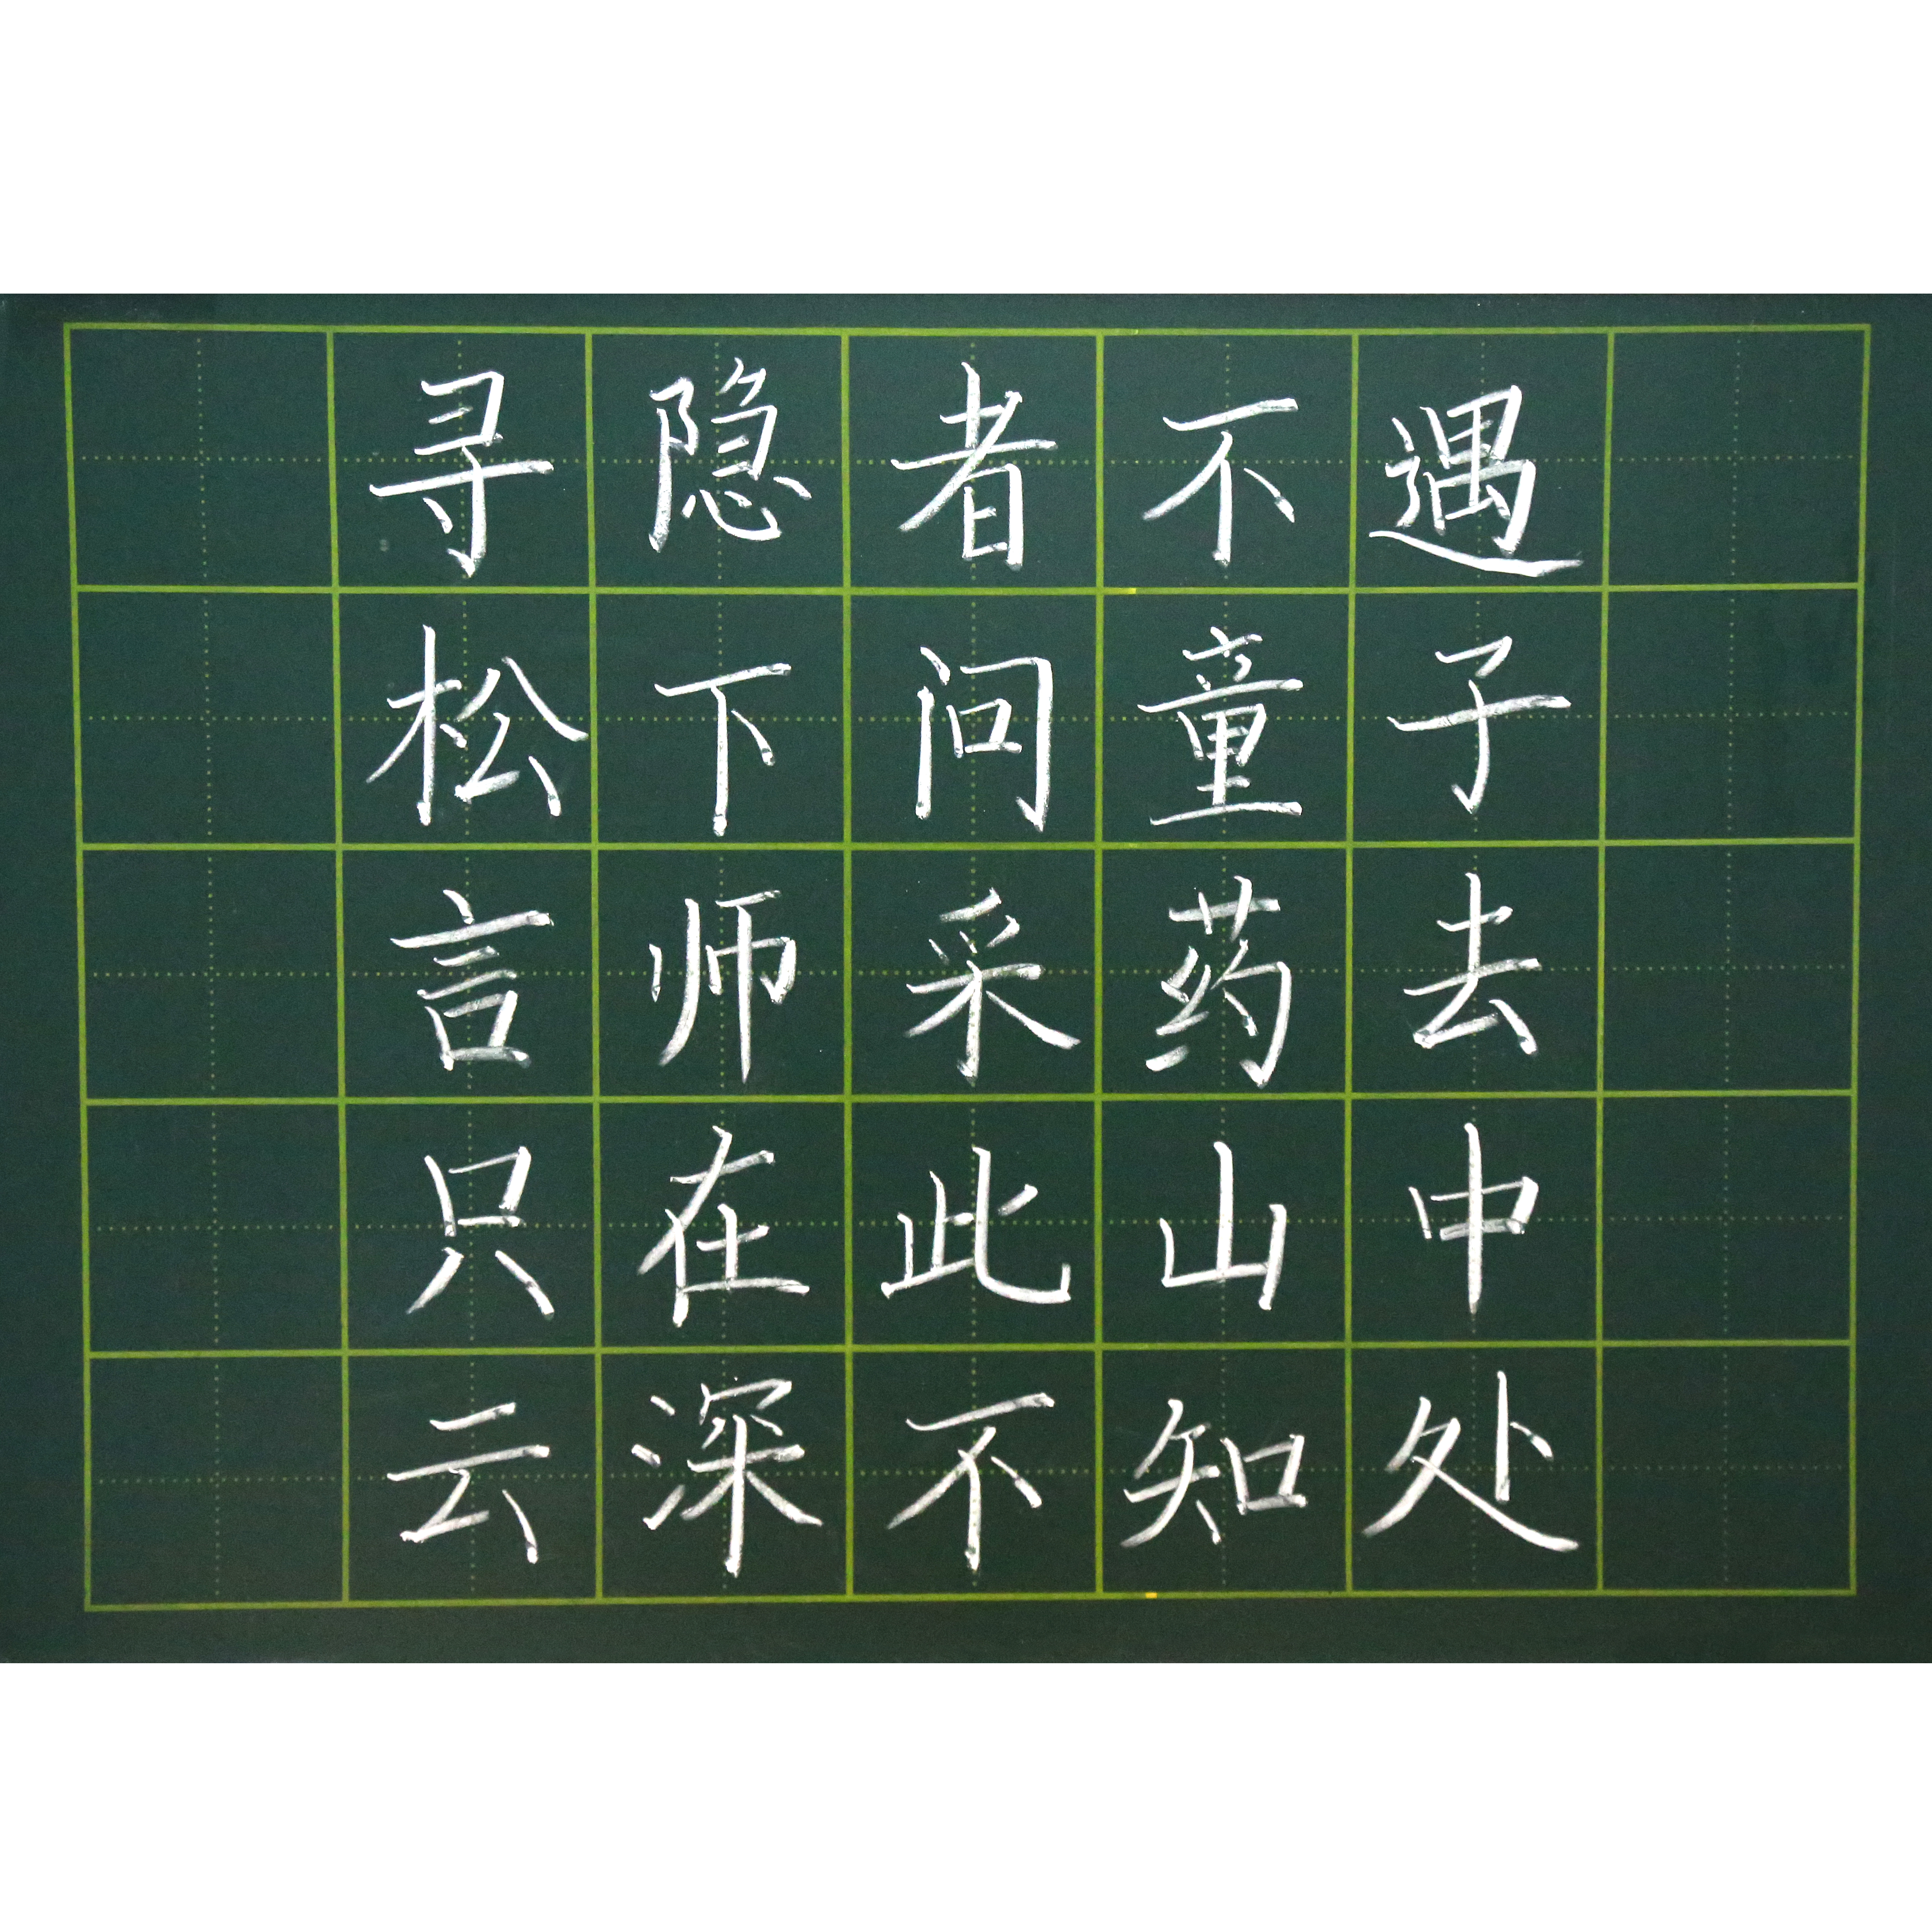 寻隐者不遇
松下问童子
言师采药去
只在此山中
云深不知处